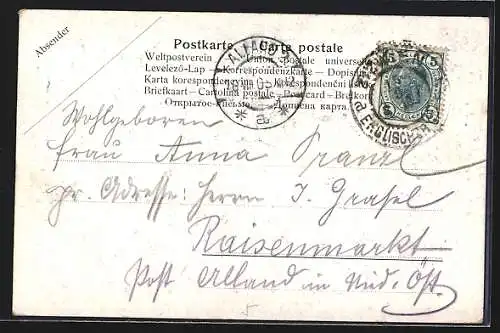 Absender
Postkarte. Carte postale
Weltpostverein Union postale universelle
Levelező-Lap — Korrespondenzkarte — Dopisnice
Karta korespondencyjna Korespondenční
Briefkaart — Cartolina postale — Postcard — Brefkort
Открытое письмо — Дописна карта.
ALLAND
Wohlgeboren
Frau Anna Pranzl
pr. Adresse: Herrn J. Grasel
Raisenmarkt
Post Alland in Nied. Öst.